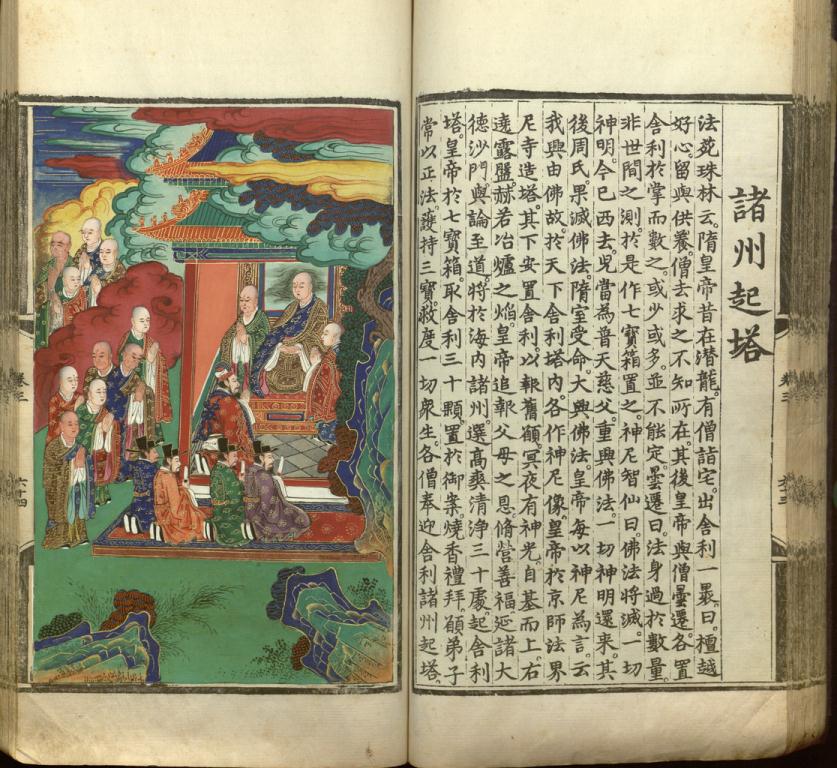 諸州起塔
法苑珠林云。隋皇帝昔在潛龍。有僧詣宅。出舍利一裹。曰。檀越
好心。留與供養。僧去求之不知所在。其後皇帝與僧曇遷。各置
舍利於掌而數之。或少或多。並不能定。曇遷曰。法身過於數量。
非世間之測。於是作七寶箱置之。神尼智仙曰。佛法將滅。一切
神明。今已西去。兒當為普天慈父。重興佛法。一切神明還來。其
後周氏果滅佛法。隋室受命。大興佛法。皇帝每以神尼為言。云
我興由佛故。於天下舍利塔內。各作神尼像。皇帝於京師法界
尼寺造塔。其下安置舍利。以報舊願。冥夜有神光。自基而上。右
遶露盤。赫若冶爐之焰。皇帝追報父母之恩。脩營善福。延諸大
德沙門。與論至道。將於海內諸州。選高爽清淨三十處。起舍利
塔。皇帝於七寶箱取舍利三十顆。置於御案。燒香禮拜。願弟子
常以正法。護持三寶。救度一切衆生。各僧奉迎舍利諸州起塔。
卷三
六十四